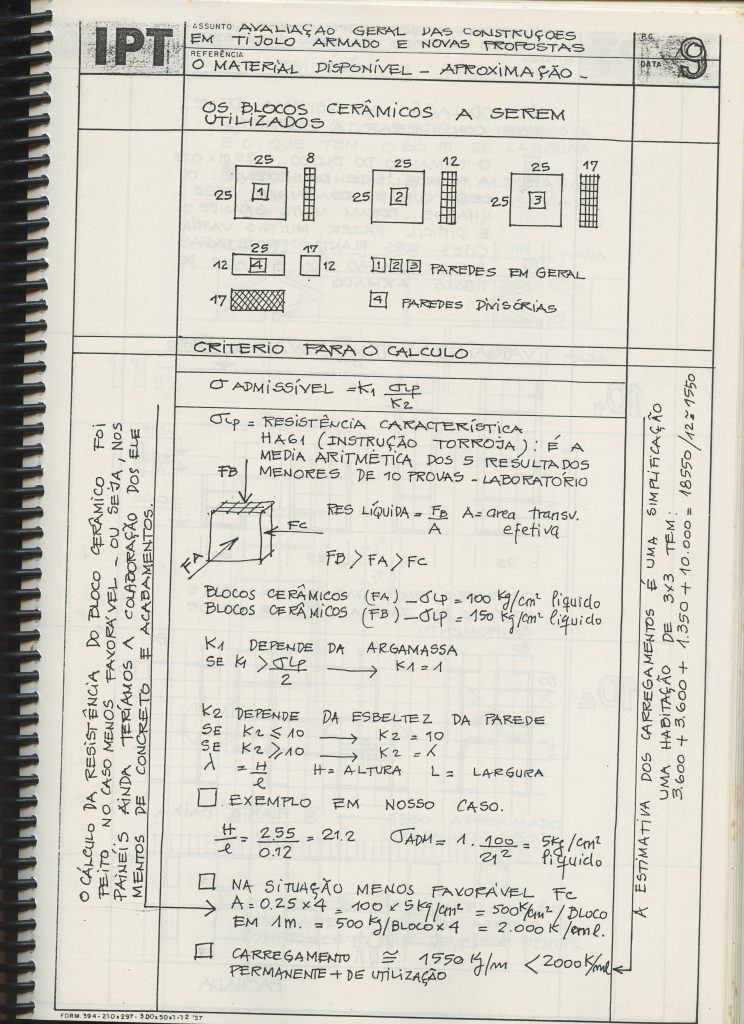 IPT
ASSUNTO AVALIAÇÃO GERAL DAS CONSTRUÇÕES
EM TIJOLO ARMADO E NOVAS PROPOSTAS
REFERÊNCIA
O MATERIAL DISPONÍVEL - APROXIMAÇÃO -
PG.
DATA
9
OS BLOCOS CERÂMICOS A SEREM
UTILIZADOS
25 8 25 12 25 17
25 1 25 2 25 3
25 17
12 4 12 1 2 3 PAREDES EM GERAL
17 4 PAREDES DIVISÓRIAS
CRITERIO PARA O CALCULO
σ ADMISSÍVEL = K1 σLp / K2
σLp = RESISTÊNCIA CARACTERÍSTICA
HA61 (INSTRUÇÃO TORROJA): É A
MEDIA ARITMÉTICA DOS 5 RESULTADOS
MENORES DE 10 PROVAS - LABORATÓRIO
FB
FC
FA
RES LÍQUIDA = FB / A A = area transv.
efetiva
FB > FA > FC
BLOCOS CERÂMICOS (FA) - σLp = 100 Kg/cm² líquido
BLOCOS CERÂMICOS (FB) - σLp = 150 Kg/cm² líquido
K1 DEPENDE DA ARGAMASSA
SE K1 > σLp / 2 → K1 = 1
K2 DEPENDE DA ESBELTEZ DA PAREDE
SE K2 ≤ 10 → K2 = 10
SE K2 ≥ 10 → K2 = λ
λ = H / l H = ALTURA L = LARGURA
EXEMPLO EM NOSSO CASO.
H / l = 2.55 / 0.12 = 21.2 σADM = 1 . 100 / 21² = 5Kg/cm²
líquido
NA SITUAÇÃO MENOS FAVORÁVEL FC
A = 0.25 x 4 = 100 x 5 Kg/cm² = 500K/cm² / BLOCO
EM 1m. = 500 Kg/BLOCO x 4 = 2.000 K/em l.
CARREGAMENTO ≅ 1550 K/m < 2000 K/ml
PERMANENTE + DE UTILIZAÇÃO
O CÁLCULO DA RESISTÊNCIA DO BLOCO CERÂMICO FOI
FEITO NO CASO MENOS FAVORÁVEL - OU SEJA, NOS
PAINÉIS AINDA TERÍAMOS A COLABORAÇÃO DOS ELE
MENTOS DE CONCRETO E ACABAMENTOS.
A ESTIMATIVA DOS CARREGAMENTOS É UMA SIMPLIFICAÇÃO
UMA HABITAÇÃO DE 3x3 TEM:
3.600 + 3.600 + 1.350 + 10.000 = 18550/12 ≅ 1550
FORM. 394 - 210 x 297 - 300x50x1-12 '57